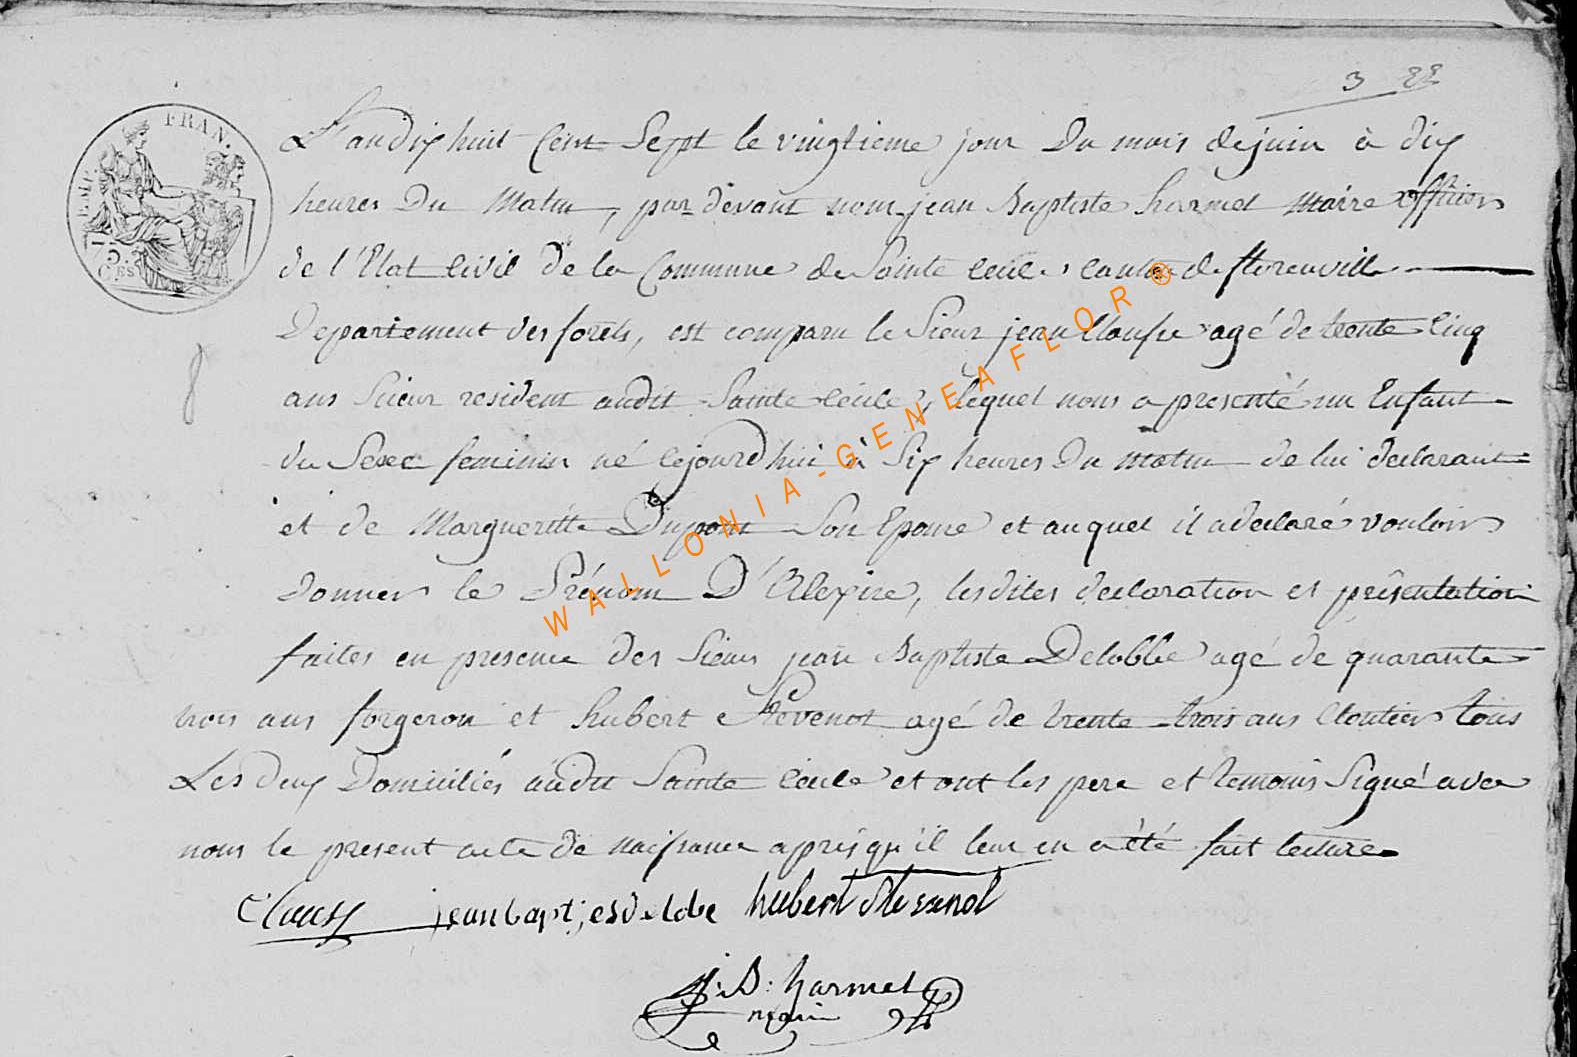 3 22
EMP. FRAN.
75.
C.ES
L'an dix huit Cent Sept le vingtieme jour Du mois dejuin à dix
heures Du Matin, par devant nous jean Baptiste harmel Maire officier
de l'Etat Civil de la Commune de Sainte Cecile, canton de florenville
Departement des forêts, est comparu le Sieur jean Clausse agé de trente Cinq
ans Scieur resident audit Sainte Cécile, lequel nous a presenté un Enfant
du Sexe feminin né cejourd'hui à Six heures Du Matin de lui declarant
et de Margueritte Dupont Son Epouse et auquel il a declaré vouloir
Donner le Prénom D'Alexise, lesdites declaration et présentation
faites en presence des Sieurs jean Baptiste Delobbe agé de quarante
trois ans forgeron et hubert Stevenot agé de trente trois ans Cloutier tous
Les deux Domiciliés audit Sainte Cécile et ont les pere et temoins Signé avec
nous le present acte de naissance après qu'il leur en a été fait lecture
Clauss jeanbaptiesdelobe hubert Stevenot
J: B: harmel
WALLONIA-GENEAFLOR®